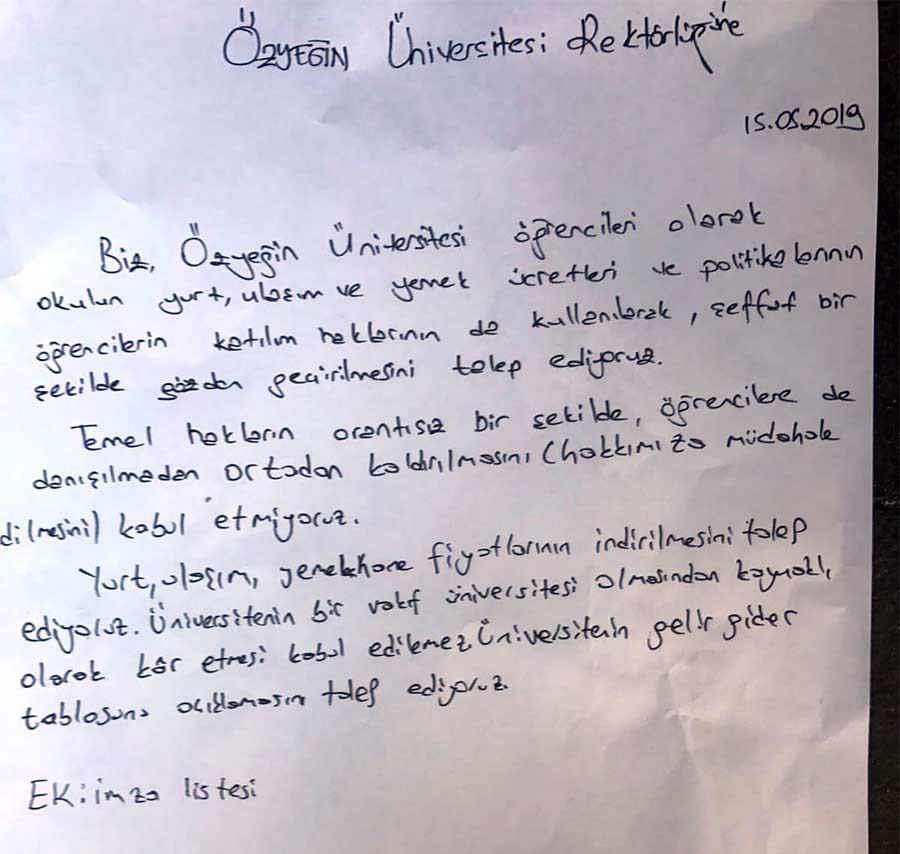 ÖZYEĞİN Üniversitesi Rektörlüğüne
15.05.2019
Biz, Özyeğin Üniversitesi öğrencileri olarak
okulun yurt, ulaşım ve yemek ücretleri ve politikalarının
öğrencilerin katılım haklarının da kullanılarak, şeffaf bir
şekilde gözden geçirilmesini talep ediyoruz.
Temel hakların orantısız bir şekilde, öğrencilere de
danışılmadan ortadan kaldırılmasını (hakkımıza müdahale
dilmesini) kabul etmiyoruz.
Yurt, ulaşım, yemekhane fiyatlarının indirilmesini talep
ediyoruz. Üniversitenin bir vakıf üniversitesi olmasından kaynaklı
olarak kâr etmesi kabul edilemez. Üniversitenin gelir gider
tablosunu açıklamasını talep ediyoruz.
EK: imza listesi